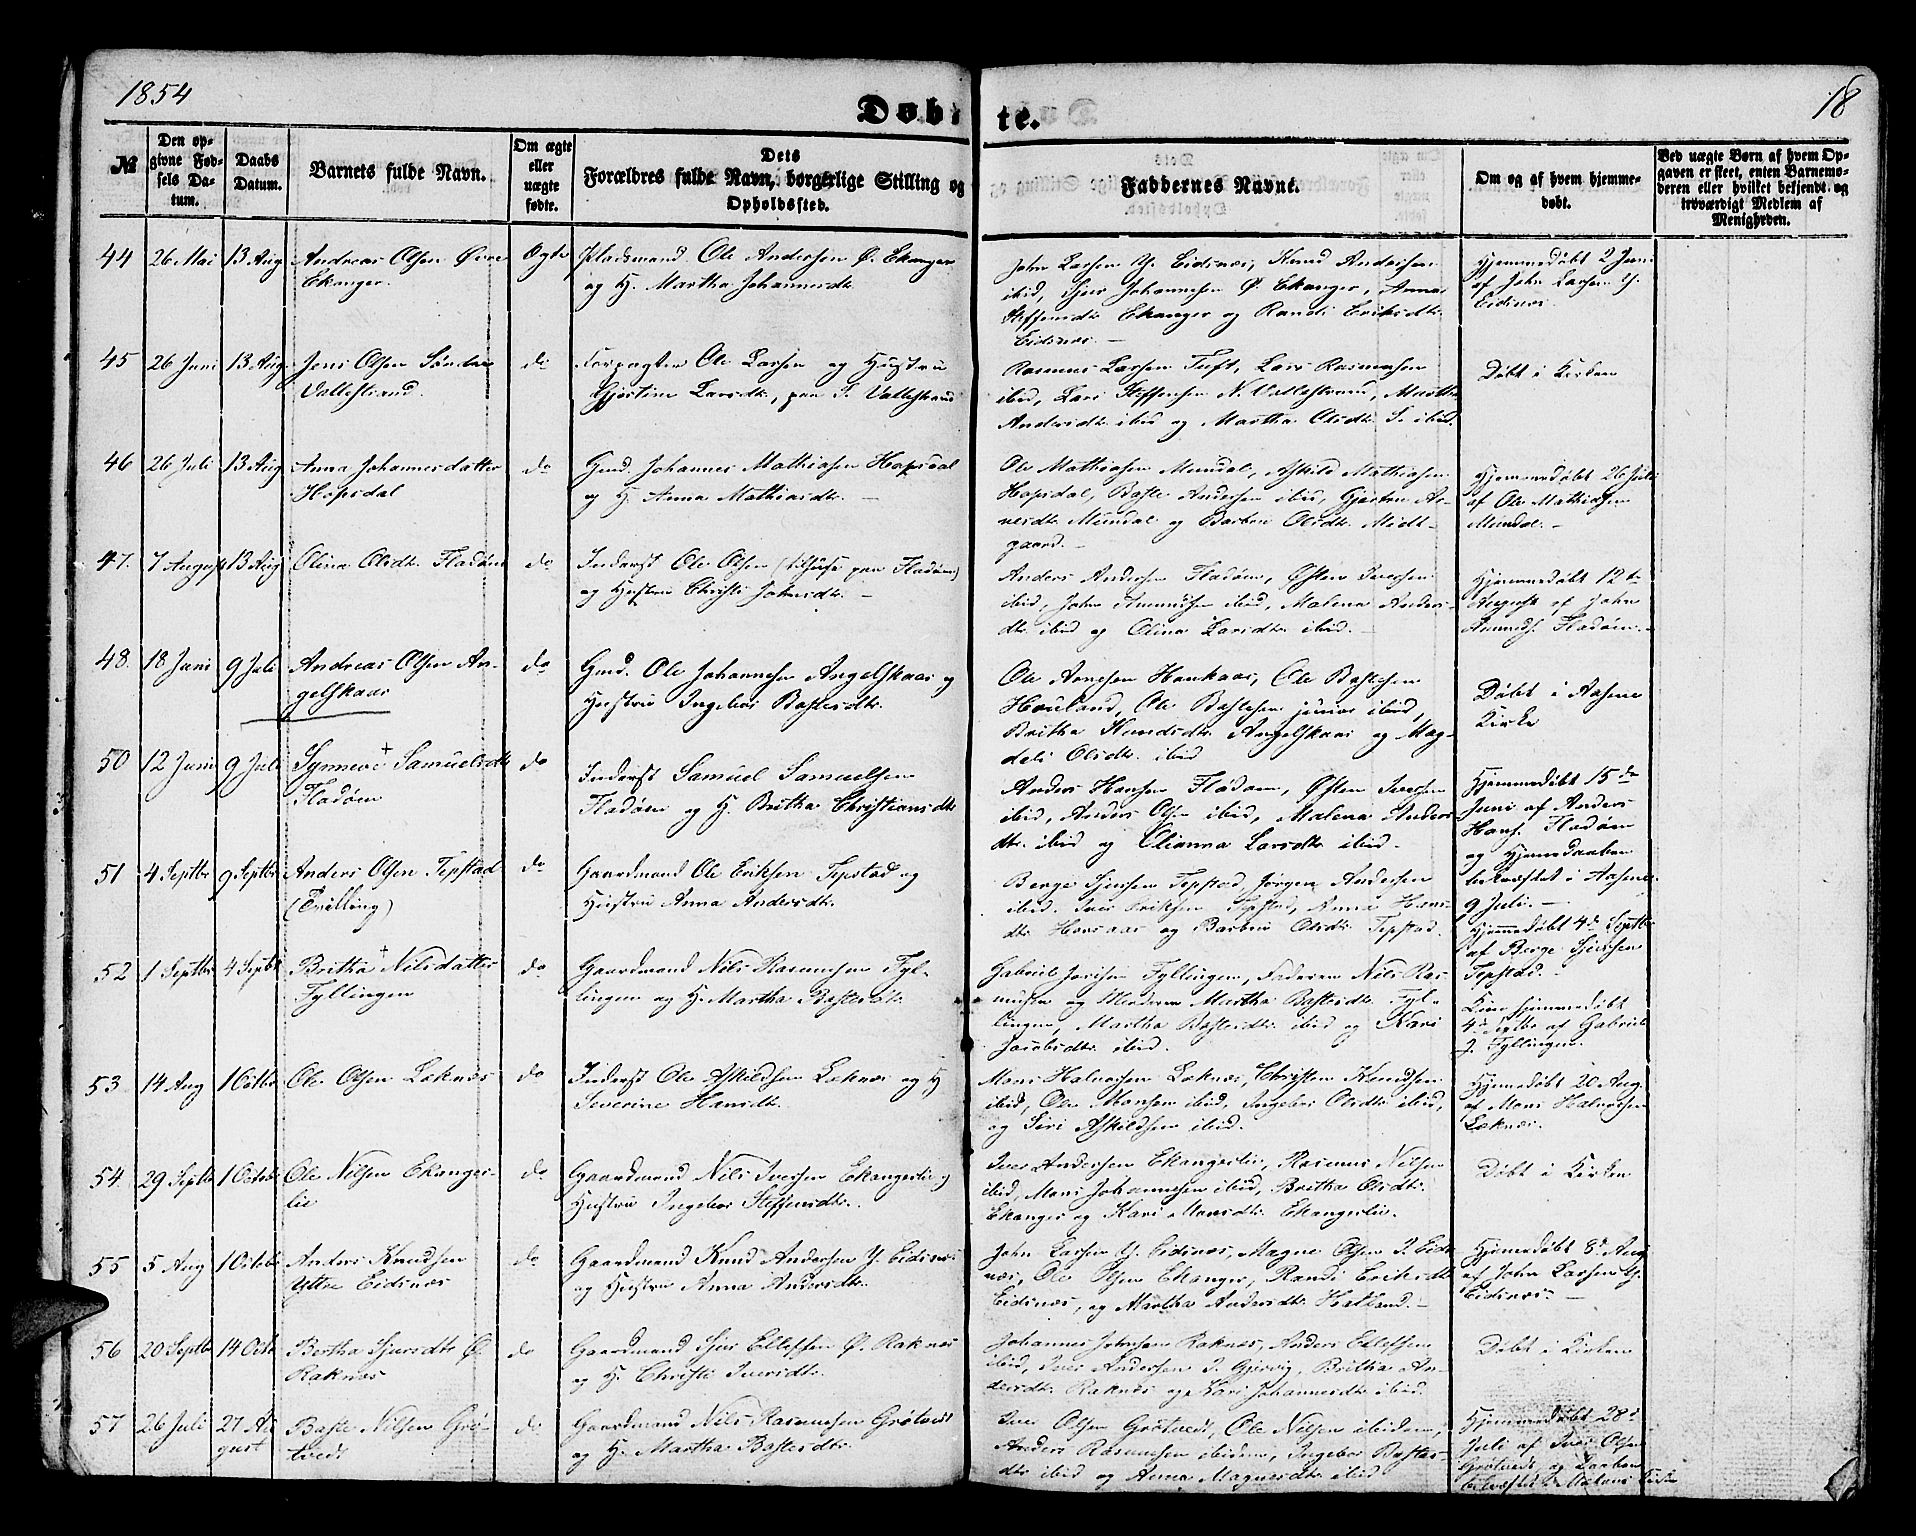 1854
18
Døbte.
№
Den opgivne Fødsels Datum.
Daabs Datum.
Barnets fulde Navn.
Om ægte eller uægte fødte.
Dets Forældres fulde Navn, borgerlige Stilling og Opholdssted.
Faddernes Navne.
Om og af hvem hjemmedøbt.
Ved uægte Børn af hvem Opgaven er skeet, enten Barnemoderen eller hvilket bekjendt og troværdigt Medlem af Menigheden.
44 26 Mai 13 Aug Andreas Olsen Øvre Ægte Pladsmand Ole Andersen Ø. Ekanger
Ekanger. og H. Martha Johannesdtr
John Larsen Y. Eidsnes, Knud Andersen
ibid, Sjur Johannesen Ø. Ekanger, Anna
Steffensdtr Ekanger og Randi Eriksdtr
Eidsnes. —
Hjemmedøbt 2 Juni
af John Larsen Y.
Eidsnes.
45 26 Juni 13 Aug. Jens Olsen Søndre do Forpagter Ole Larsen og Hustru
Vallestrand. Gjertine Larsdtr, paa S. Vallestrand
Rasmus Larsen Tuft, Lars Rasmussen
ibid, Lars Steffensen N. Vallestrand, Martha
Andersdtr ibid og Martha Olsdtr S. ibid.
Døbt i Kirken
46 26 Juli 13 Aug Anna Johannesdatter do Gmd. Johannes Mathiasen Hopsdal
Hopsdal og H. Anna Mathiasdtr. —
Ole Mathiasen Mundal, Askild Mathiasen
Hopsdal, Baste Andersen ibid, Gjertru An-
nesdtr Mundal og Barbra Olsdtr Midt-
gaard. —
Hjemmedøbt 26 Juli
af Ole Mathiasen
Mundal. —
47. 7 August 13 Aug Olina Olsdtr. Fladøen do Inderst Ole Olsen (tilhuse paa Fladøen)
og Hustru Christi Johnsdtr. —
Anders Andersen Fladøen, Østen Iversen
ibid, John Amundsen ibid, Malena Anders-
dtr ibid og Olina Larsdtr ibid. —
Hjemmedøbt 12te
August af John
Amunds. Fladøen. —
48. 18 Juni 9 Juli Andreas Olsen An- do Gmd. Ole Johannesen Angelskaar og
gelskaar Hustru Ingebor Bastesdtr.
Ole Arnesen Haukaas, Ole Bastesen
Houland, Ole Bastesen junior ibid,
Britha Knudsdtr Angelskaar og Mag-
deli Olsdtr. ibid
Døbt i Aasene
Kirke
50 12 Juni 9 Juli Synneve + Samuelsdtr do Inderst Samuel Samuelsen
Fladøen Fladøen og H. Britha Christiansdtr
Anders Hansen Fladøen, Østen Iversen
ibid, Anders Olsen ibid, Malena Anders-
dtr ibid og Olianna Larsdtr ibid. —
Hjemmedøbt 15de
Juni af Anders
Hans. Fladøen
og Hjemmedaaben
bekræftet i Aasene
9 Juli. —
51 4 Septbr 9 Septbr Anders Olsen Tepstad do Gaardmand Ole Eriksen Tepstad og
(Tvilling) Hustru Anna Andersdtr.
Berge Sjursen Tepstad, Jørgen Andersen
ibid. Iver Eriksen Tepstad, Anna Hans-
dtr Horsaas og Barbra Olsdtr Tepstad.
Hjemmedøbt 4de Septbr
af Berge Sjursen
Tepstad. —
52 1 Septbr 4 Septbr Britha + Nilsdatter do Gaardmand Nils Rasmussen Fyl-
Fyllingen lingen og H. Martha Bastesdtr.
Gabriel Joensen Fyllingen, Faderen Nils Ras-
mussen og Moderen Martha Bastesdtr Fyl-
lingen, Martha Bastesdtr ibid og Kari
Jacobsdtr ibid.
Kun hjemmedøbt
4de Septbr af Gabriel
J. Fyllingen.
53 14 Aug 1 Octbr Ole Olsen Loknæs do Inderst Ole Askildsen Loknæs og H
Severine Hansdtr.
Mons Halvorsen Loknæs, Christen Knudsen
ibid, Ole Monsen ibid, Ingebor Olsdtr ibid,
og Siri Askildsen ibid.
Hjemmedøbt 20 Aug.
af Mons Halvorsen
Loknæs.
54. 29 Septbr 1 Octobr Ole Nilsen Ekanger- do Gaardmand Nils Iversen Ekangerlie og
lie Hustru Ingebor Steffensdtr.
Iver Andersen Ekangerlie, Rasmus Nilsen
ibid, Mons Johannesen ibid, Britha Olsdtr
Ekanger og Kari Monsdtr. Ekangerlie.
Døbt i Kirken
55 5 Aug 1 Octobr Anders Knudsen do Gaardmand Knud Andersen Y. Eidsnes
Yttre Eidsnæs og Hustru Anna Andersdtr.
John Larsen Y. Eidsnæs, Magne Olsen I. Eids-
næs, Ole Olsen Ekanger, Randi Eriksdtr
Eidsnæs, og Martha Andersdtr. Hatland. —
Hjemmedøbt 8de Aug
af John Larsen Y.
Eidsnæs. —
56 20 Septbr 14 Octbr Bertha Sjursdtr Ø. do Gaardmand Sjur Ellefsen Ø. Raknæs
Raknæs og H. Christi Iversdtr.
Johannes Johnsen Raknæs, Anders Ellefsen
ibid, Iver Andersen I. Gjervig, Britha An-
dersdtr. Raknæs og Kari Johannesdtr ibid.
Døbt i Kirken
57 26 Juli 27 Au- Baste Nilsen Grø- do Gaardmand Nils Rasmussen Grøtvedt
gust tvedt og H. Martha Bastesdtr.
Iver Olsen Grøtvedt, Ole Nilsen ibidem,
Anders Rasmussen ibidem, Ingebor Bastes-
dtr ibid og Anna Magnesdtr ibid
Hjemmedøbt 28de
Juli af Iver Olsen
Grøtvedt og Daaben
bekræftet i Mekens Kirke